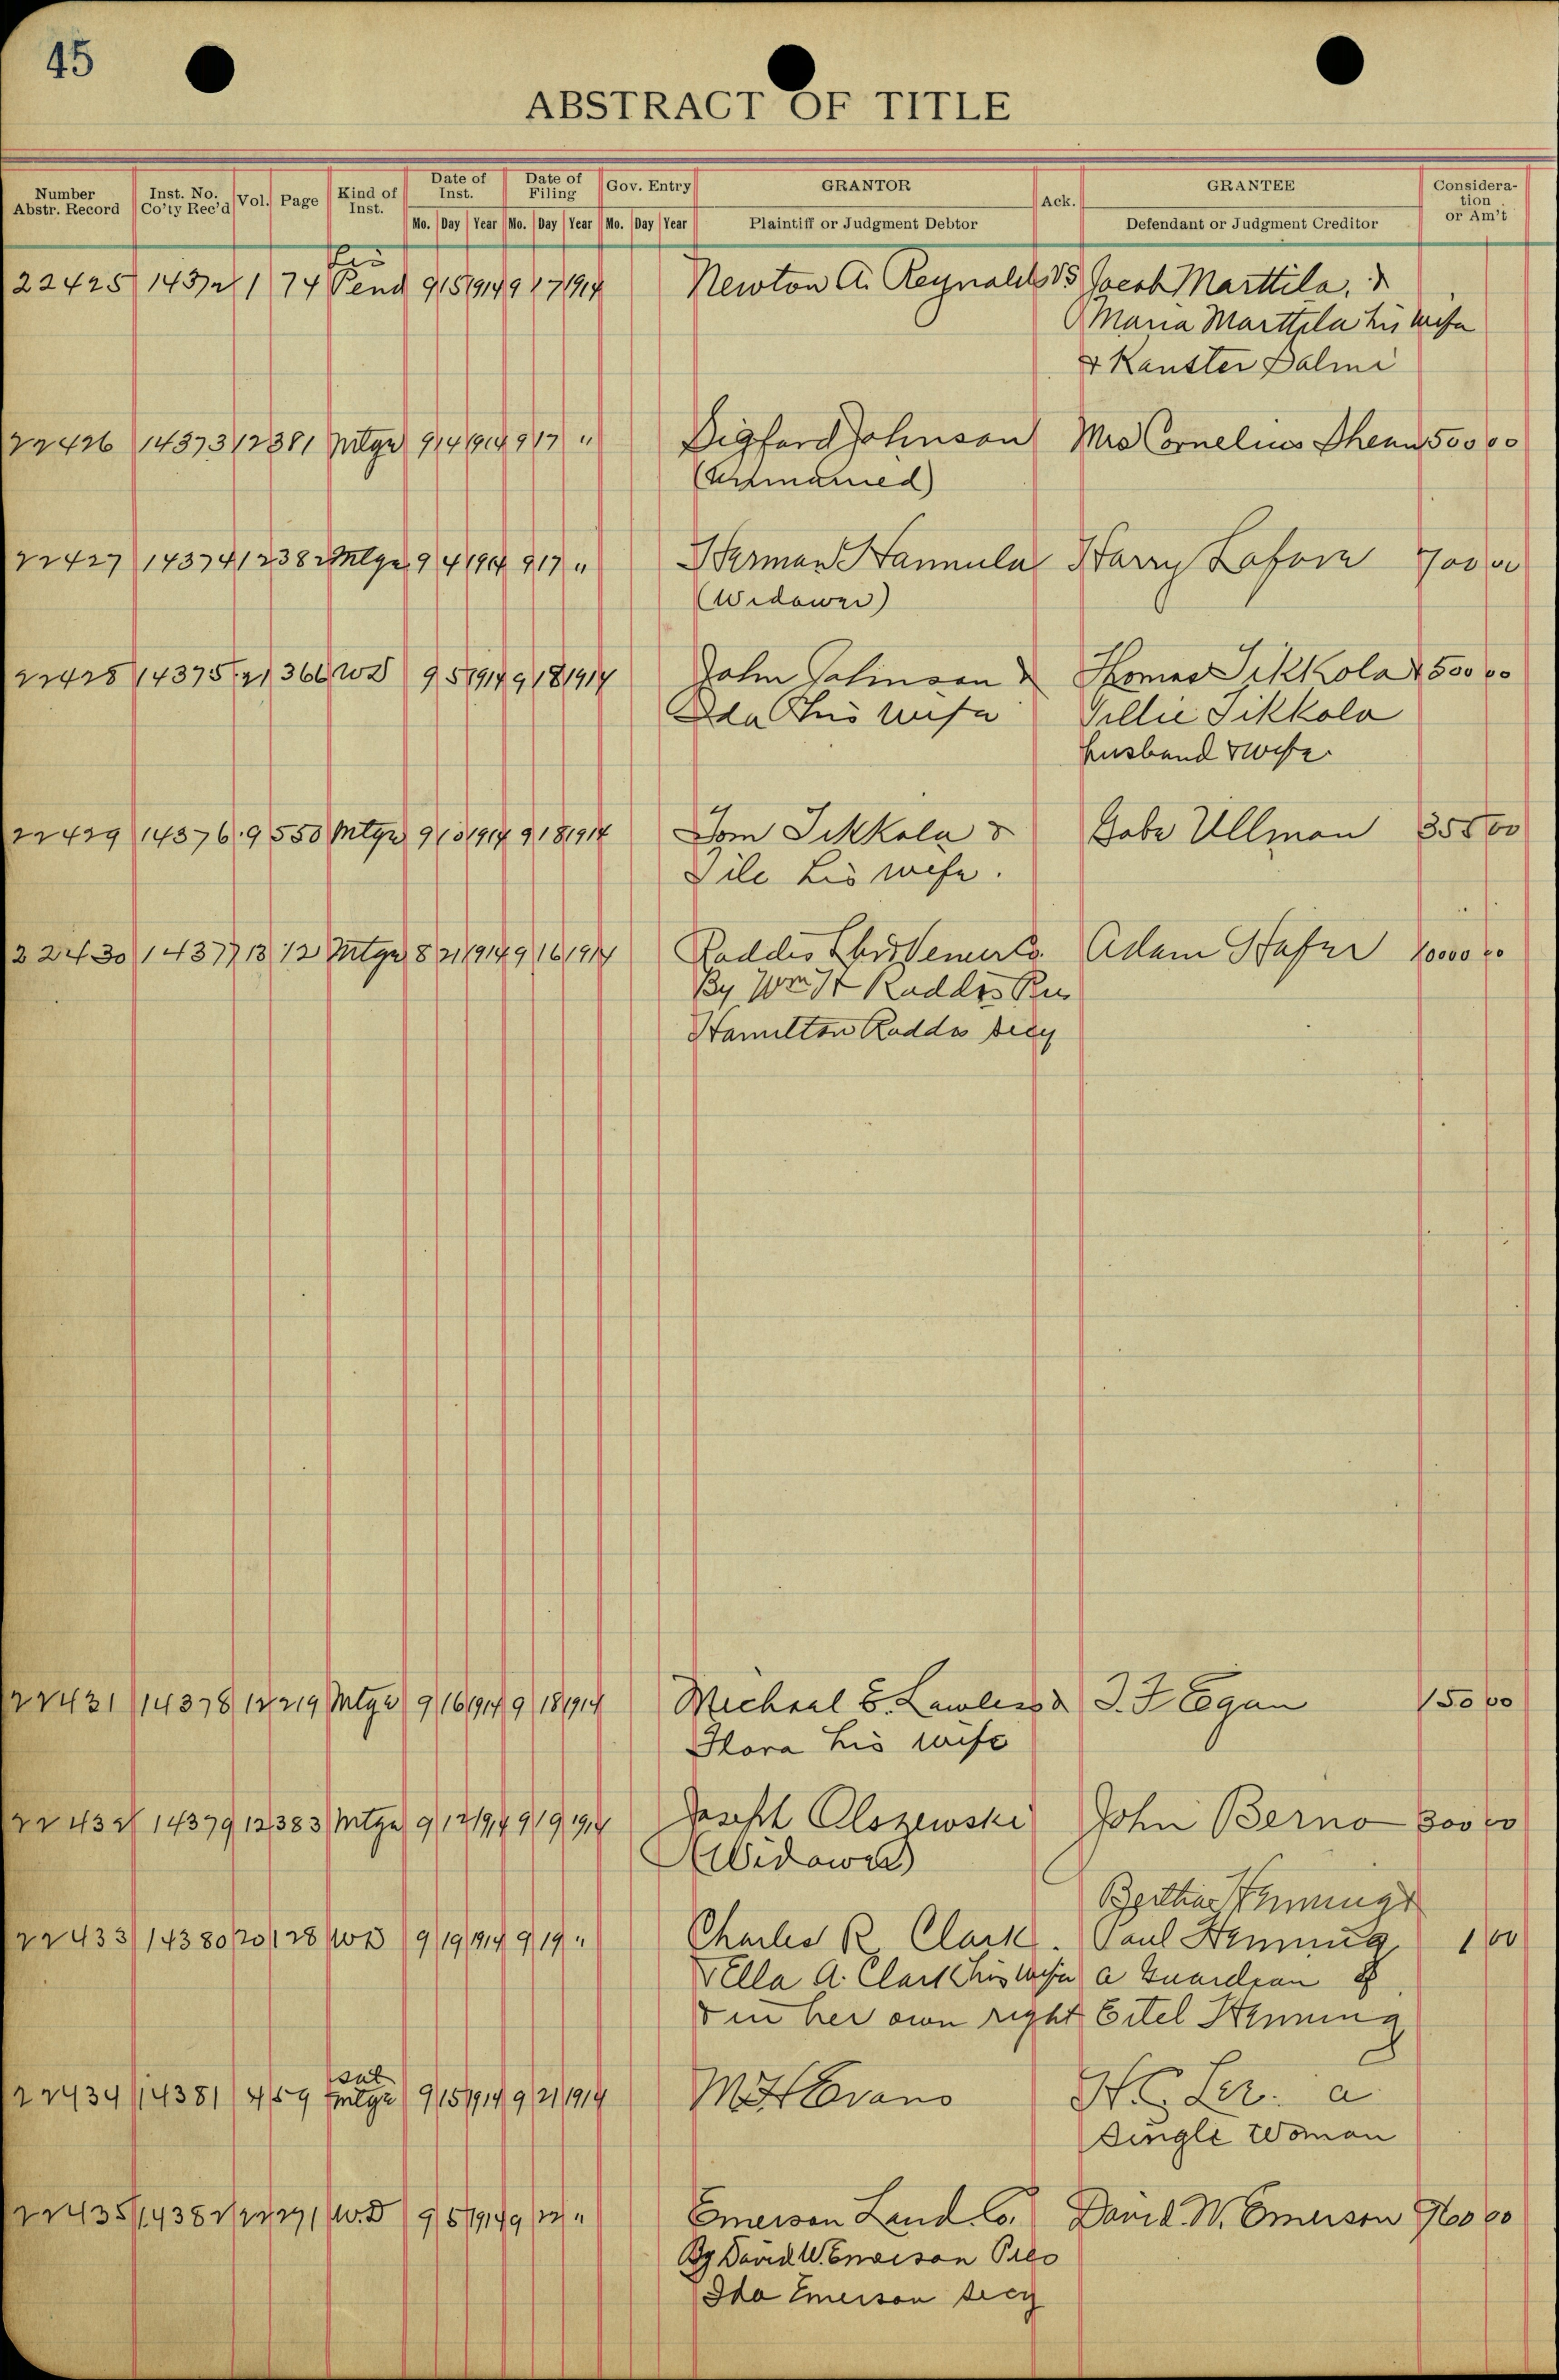 45
ABSTRACT OF TITLE
Number Abstr. Record Inst. No. Co'ty Rec'd Vol. Page Kind of Inst. Date of Inst. Date of Filing Gov. Entry GRANTOR Ack. GRANTEE Consideration or Am't
Mo. Day Year Mo. Day Year Mo. Day Year Plaintiff or Judgment Debtor Defendant or Judgment Creditor
Lis
22425 14372 1 74 Pend 9 15 1914 9 17 1914 Newton A. Reynolds VS Jacob Marttila, &
Maria Marttila his wife
& Kanster Salmi
22426 14373 12 381 Mtge 9 14 1914 9 17 " Sigfard Johnson Mrs Cornelius Shean 500 00
(Unmarried)
22427 14374 12 382 Mtge 9 4 1914 9 17 " Herman Hannula Harry Lafore 700 00
(Widower)
22428 14375 21 366 WD 9 5 1914 9 18 1914 John Johnson & Thomas Sikkola & 500 00
Ida his wife Tillie Sikkola
husband & wife
22429 14376 9 550 Mtge 9 10 1914 9 18 1914 Tom Sikkola & Gabe Ullman 355 00
his wife.
22430 14377 13 12 Mtge 8 21 1914 9 16 1914 Raddis Adam Hafer 10000 00
By Wm H Raddis
Hamilton Raddis secy
22431 14378 12 219 Mtge 9 16 1914 9 18 1914 Michael E. Lawless & J. F. Egan 150 00
Flora his wife
22432 14379 12 383 Mtge 9 12 1914 9 19 1914 Joseph Olszewski John Berno 300 00
(Widower)
Bertha Henning &
22433 14380 20 128 WD 9 19 1914 9 19 " Charles R. Clark. Paul Henning 1 00
Ella A. Clark his wife a Guardian of
& in her own right Eitel Henning
sat
22434 14381 4 59 Mtge 9 15 1914 9 21 1914 M H Evans a
Single Woman
22435 14382 22 271 W.D 9 5 1914 9 22 " Emerson Land Co. David W. Emerson 960 00
By David W. Emerson Pres
Ida Emerson secy